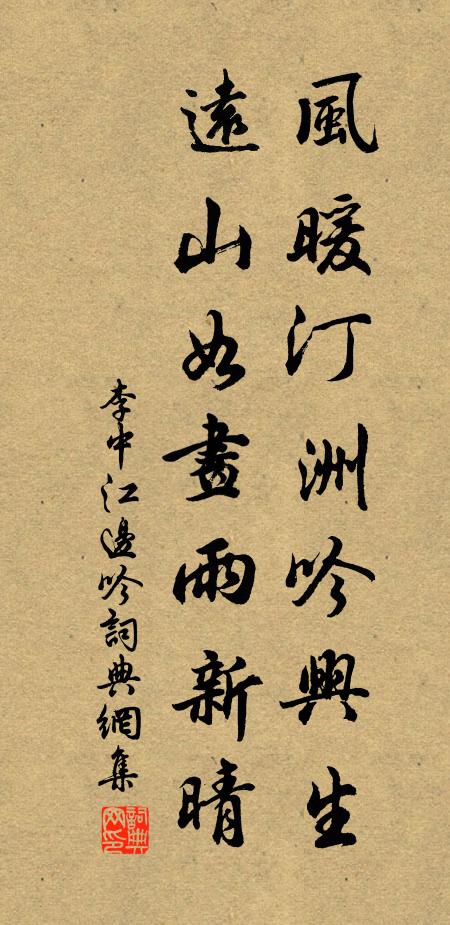 風暖汀洲吟興生
遠山如畫雨新晴
李中江邊吟詞典網集
詞典網印